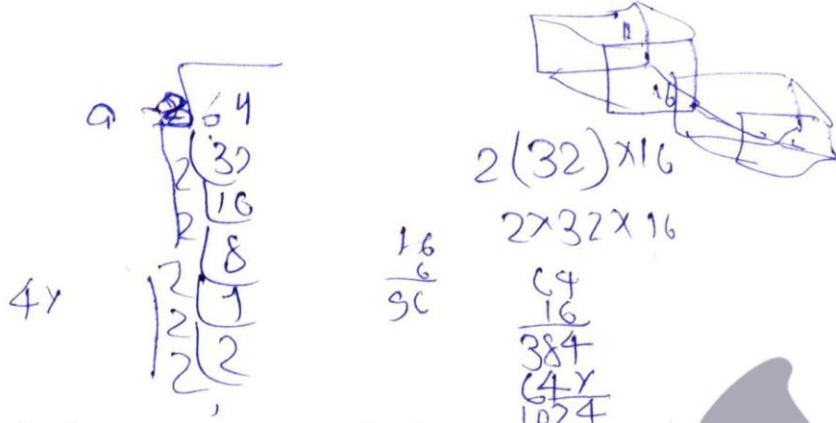 a 2 64
2 32
2 16
2 8
2 1
2 2
2
4Y
16
6
96
11
16
2(32)×16
2×32×16
64
16
384
64Y
1024